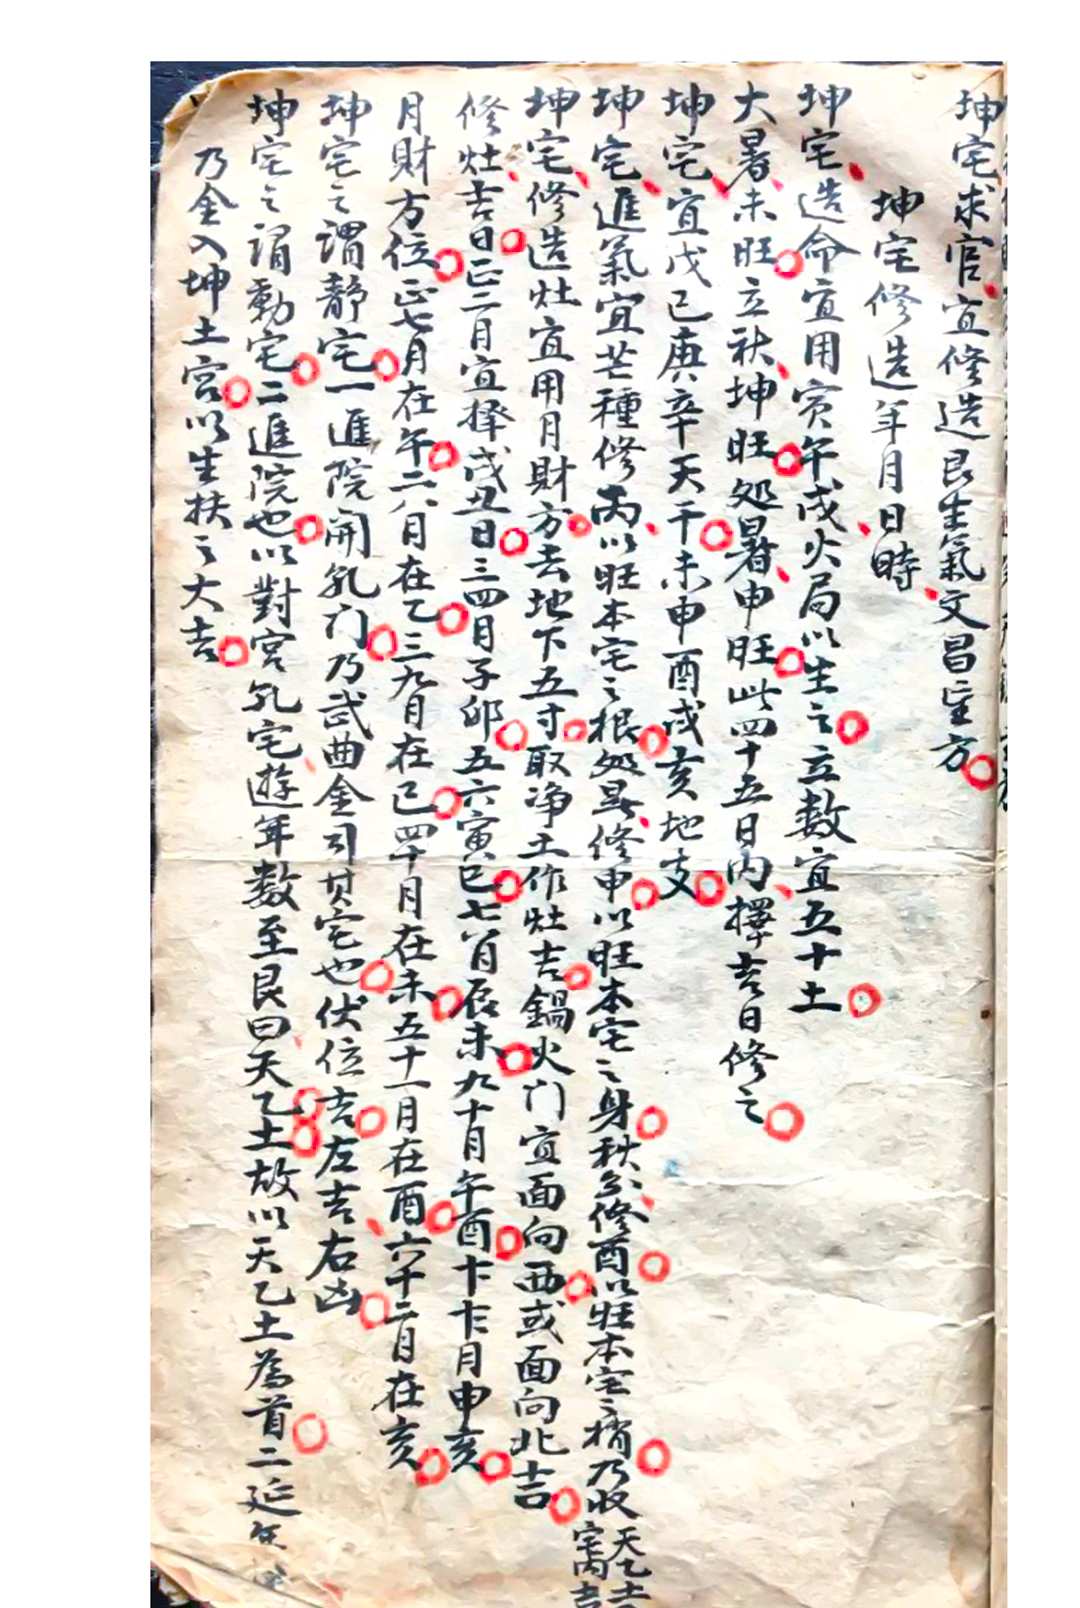 坤宅求官宜修造艮生氣文昌星方
坤宅修造年月日時
坤宅造命宜用寅午戌火局以生之立数宜五十土
大暑未旺立秋坤旺処暑申旺此四十五日内擇吉日修之
坤宅宜戊己庚辛天干未申酉戌亥地支
坤宅進氣宜芒種修丙以旺本宅之根処暑修申以旺本宅之身秋分修酉以旺本宅之梢乃收天乙土宅丙吉
坤宅修造灶宜用月財方去地下五寸取净土作灶吉鍋火门宜面向西或面向北吉
修灶吉日正二月宜擇戌丑日三四月子卯五六寅巳七八月辰未九十月午酉十十二月申亥
月財方位正七月在午二八月在乙三九月在巳四十月在未五十一月在酉六十二月在亥
坤宅之謂静宅一進院開乳门乃武曲金司其宅也伏位吉左吉右凶
坤宅之谓動宅二進院也以對宮乳宅遊年数至艮曰天乙土故以天乙土為首二延年
乃金入坤土宫以生扶之大吉